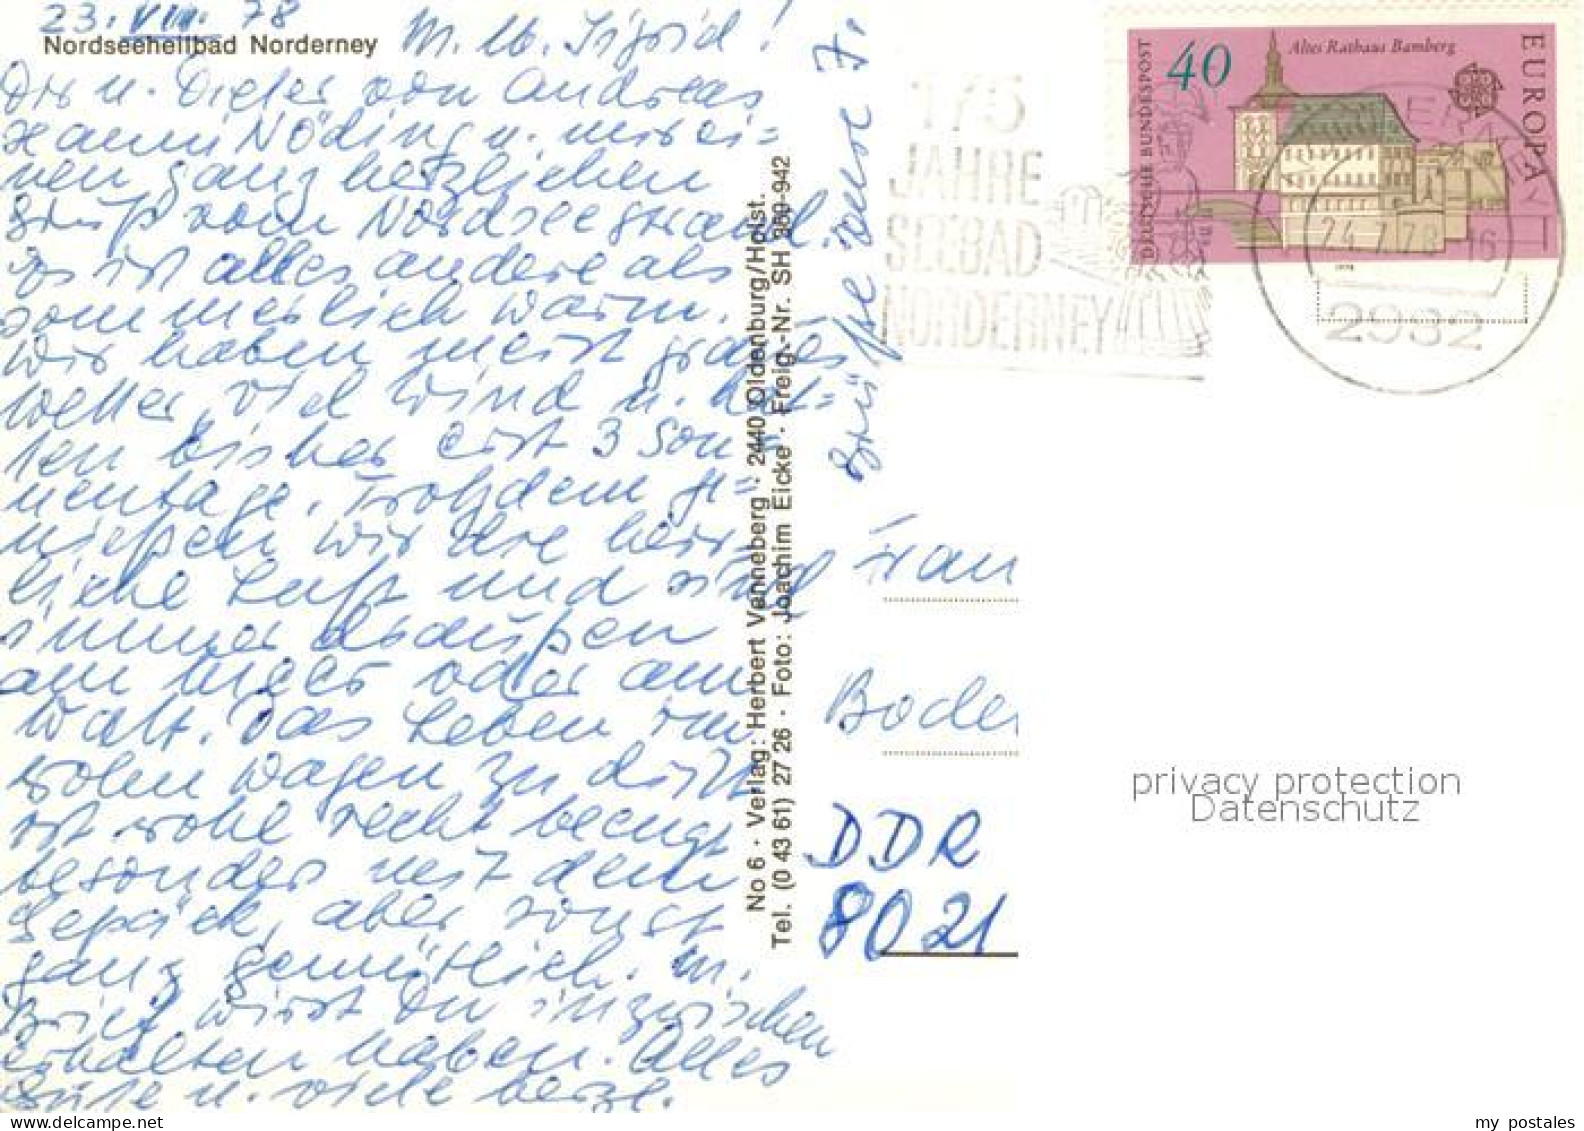 23. VII. 78
Nordseeheilbad Norderney
M. lb. Sigrid!
Dir u. Dieter von Andreas
Hanni Nöding u. mir ei=
nen ganz herzlichen
Gruß vom Nordseestrand.
Es ist alles andere als
sommerlich warm.
Wir haben meist graues
Wetter, viel Wind u. hat=
ten bisher erst 3 Son=
nentage. Trotzdem ge=
nießen wir die herr=
liche Luft und sind
immer draußen
am Meer oder am
Watt. Das Leben im
Wohnwagen zu dritt
ist wohl recht beengt
besonders mit dem
Gepäck, aber sonst
ganz gemütlich. M.
Brief wirst Du inzwischen
erhalten haben. Alles
Gute u. viele herzl.
Grüße
No 6 · Verlag: Herbert Venneberg · 2440 Oldenburg/Holst.
Tel. (0 43 61) 27 26 · Foto: Joachim Eicke · Freig.-Nr. SH 360-942
175
JAHRE
SEEBAD
NORDERNEY
DEUTSCHE BUNDESPOST
40
Altes Rathaus Bamberg
EUROPA
24.7.78-16
2982
Frau
Boder
DDR
8021
privacy protection
Datenschutz
my postales